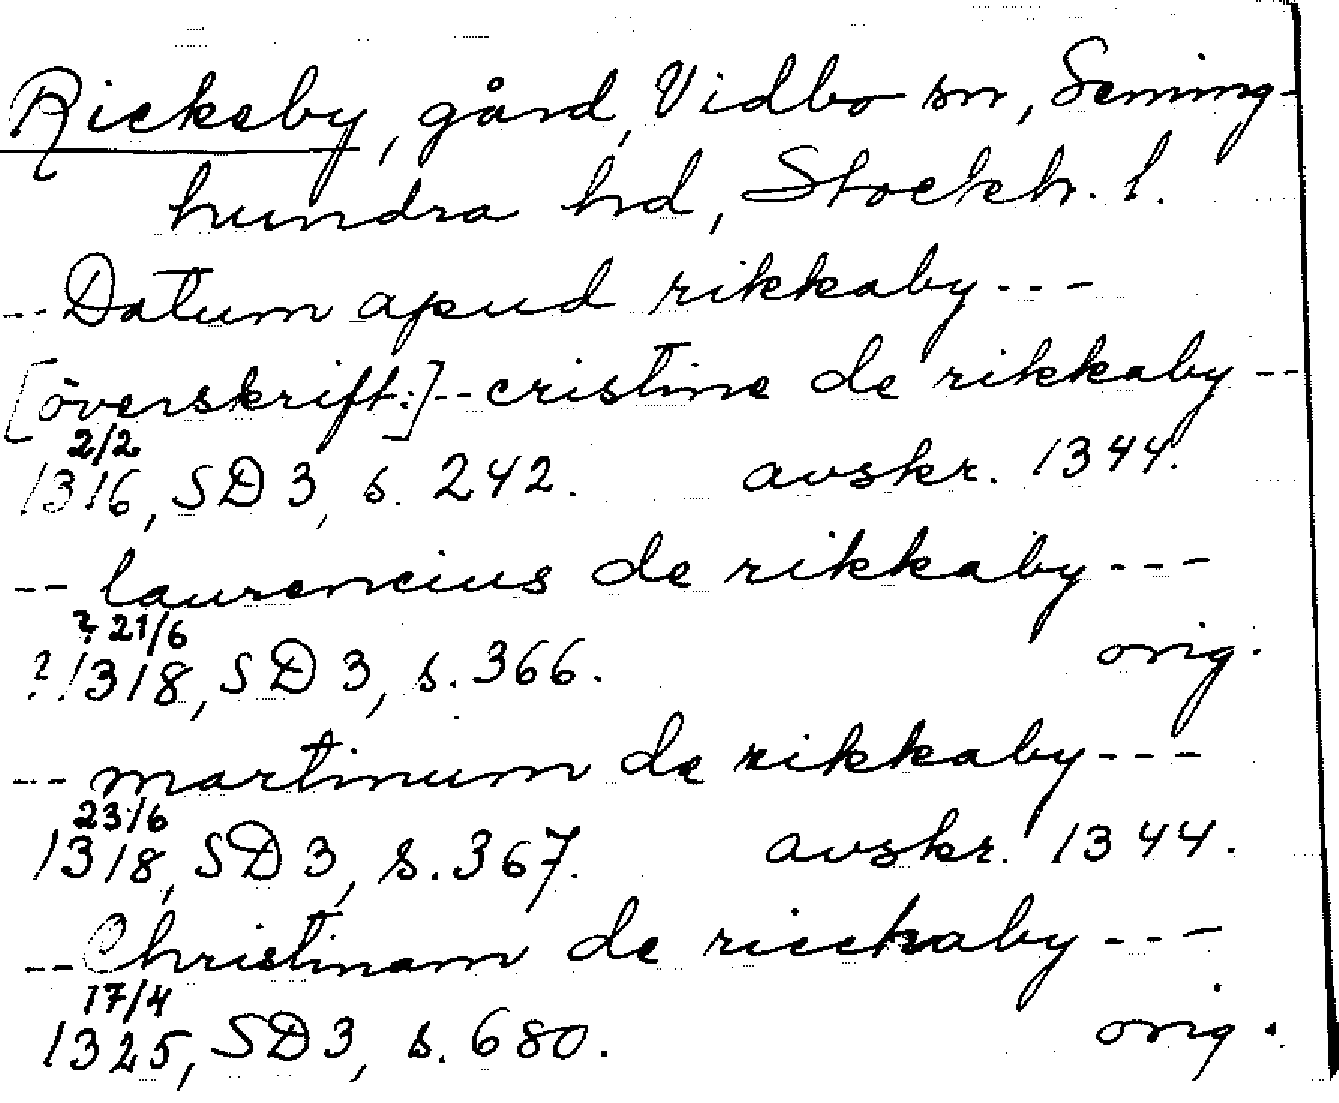 Rickeby, gård, Vidbo sn, Seming-
hundra hd, Stockh. l.
-- Datum apud rikkaby ---
[överskrift:] -- cristine de rikkaby --
2/2
1316, SD 3, s. 242. avskr. 1344.
-- laurencius de rikkaby ---
? 21/6
? 1318, SD 3, s. 366. orig.
-- martinum de rikkaby ---
23/6
1318, SD 3, s. 367. avskr. 1344.
-- Christinam de rickaby ---
17/4
1325, SD 3, s. 680. orig.